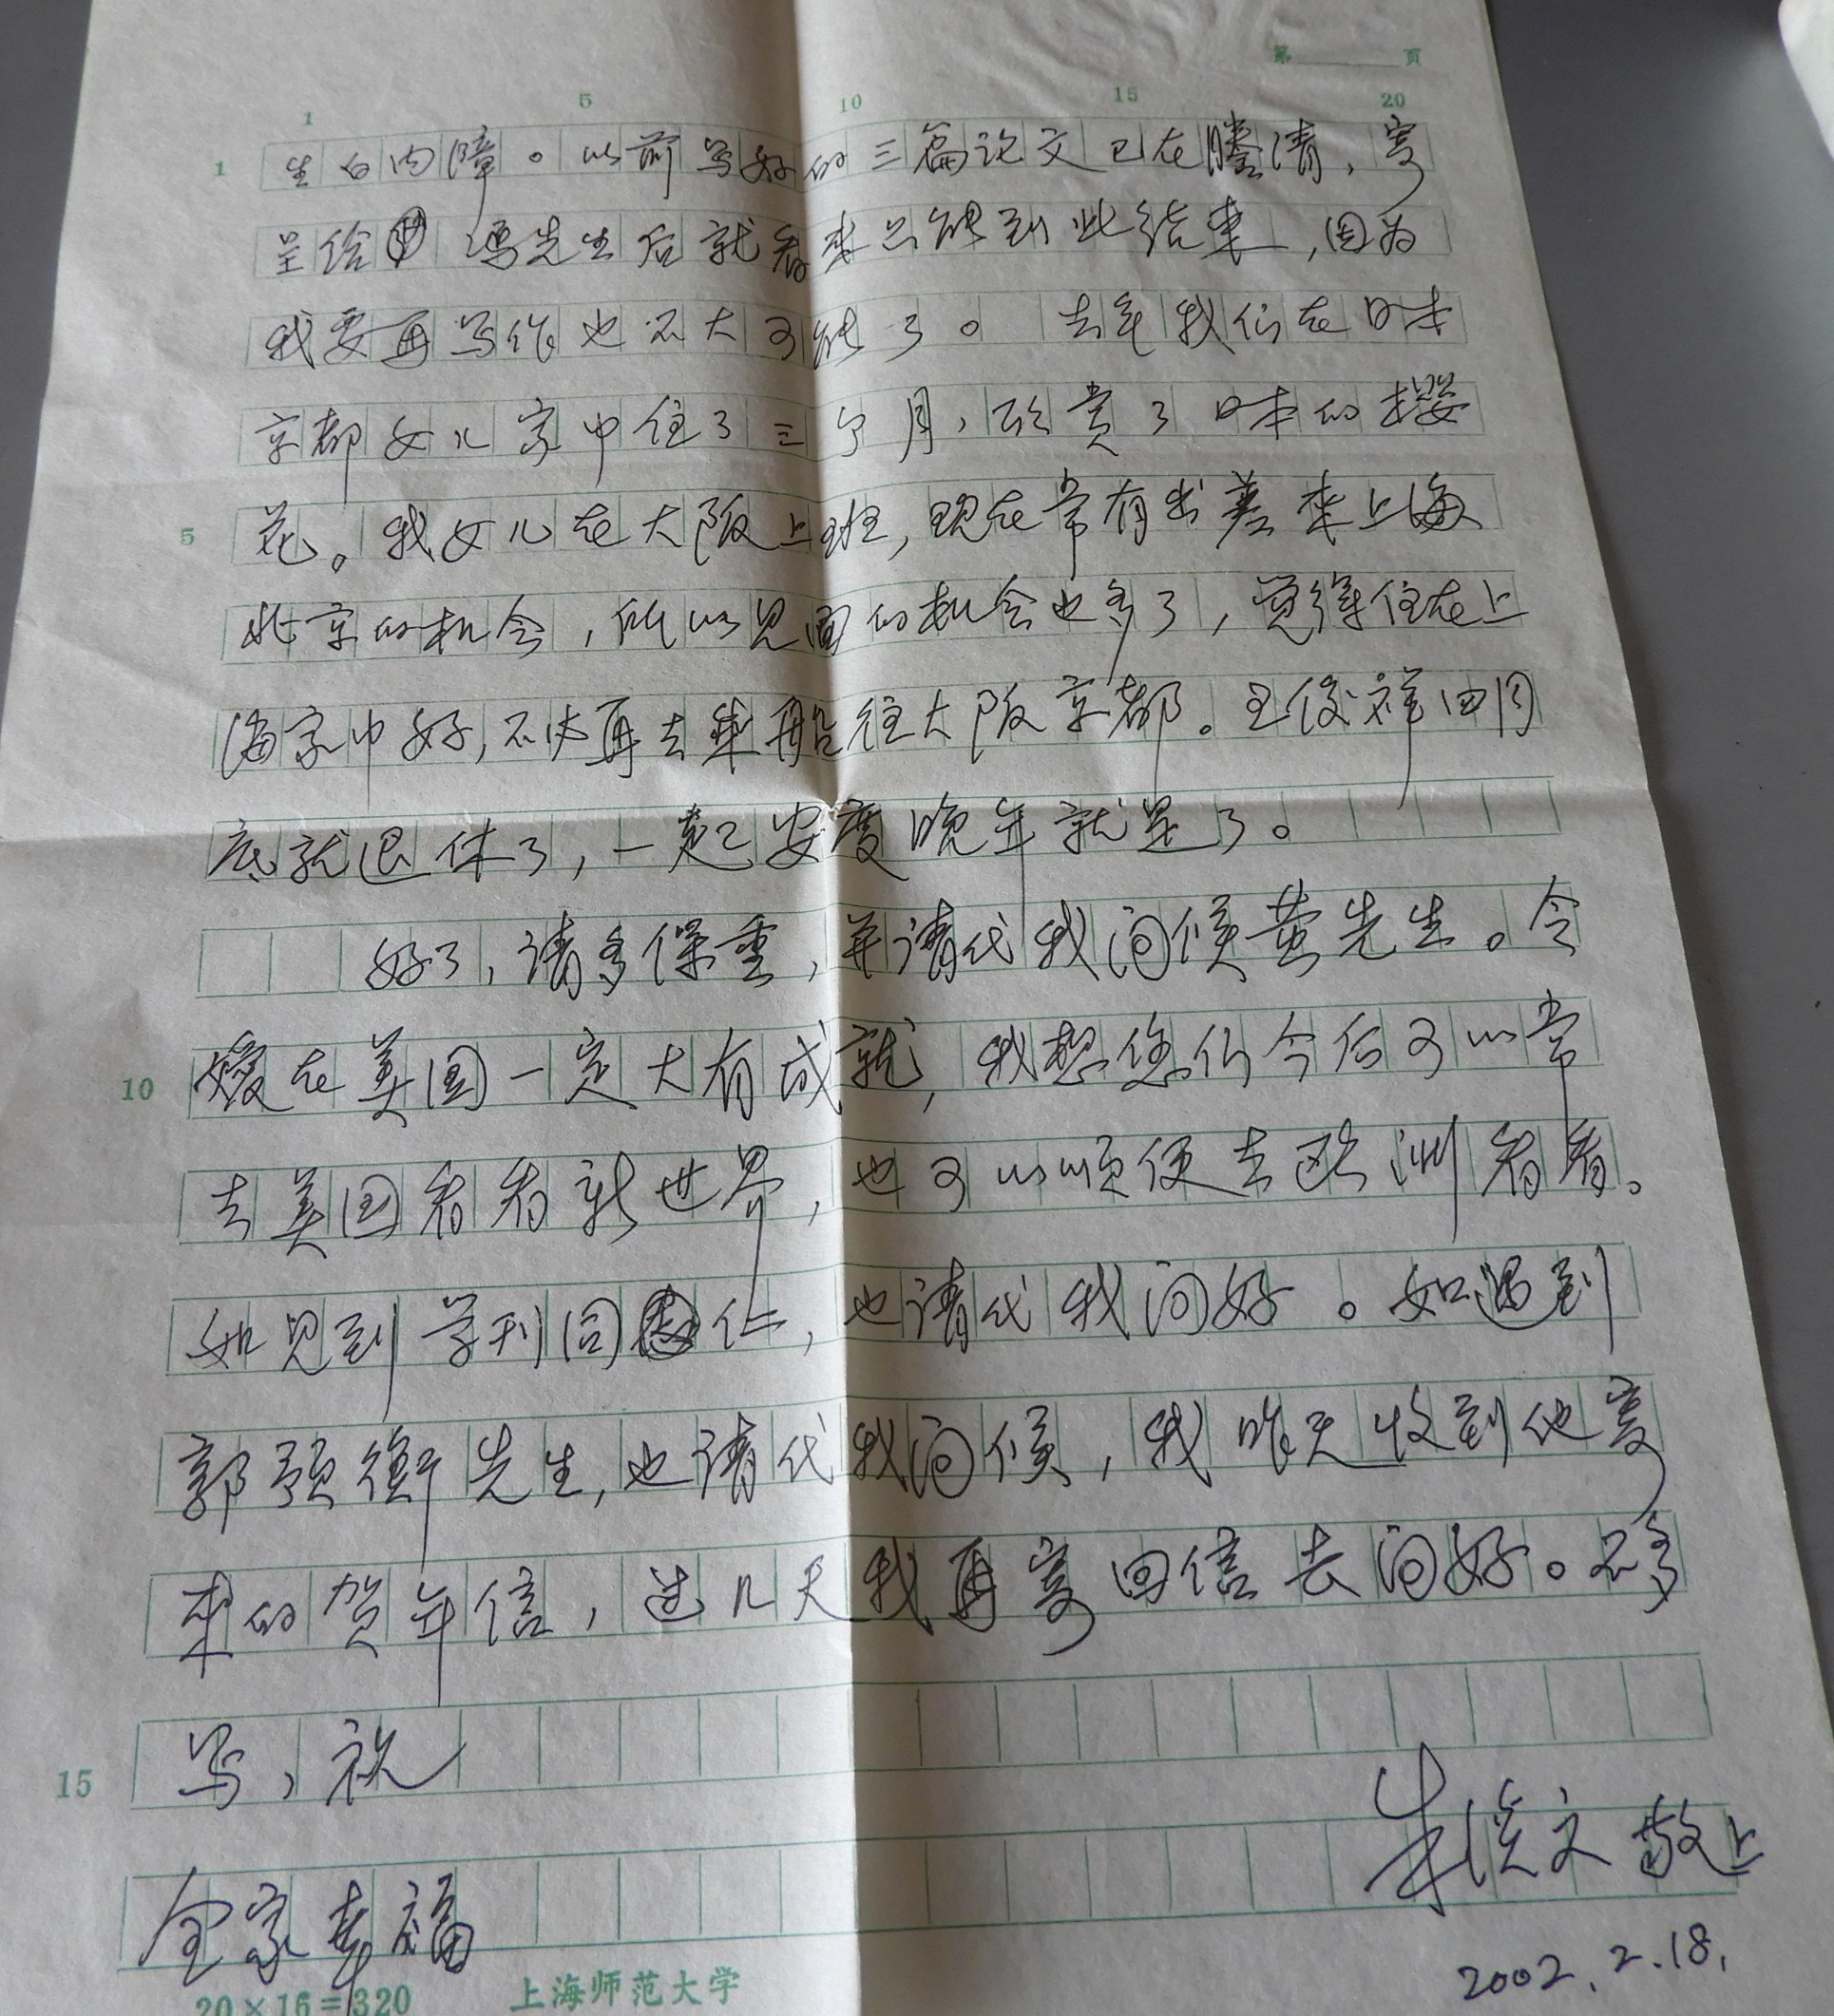 第 页
1 5 10 15 20
1 生白内障。以前写好的三篇论文已在誊清，寄
呈给 冯先生后就看来只能到此结束，因为
我要再写作也不大可能了。 去年我们在日本
京都女儿家中住了三个月，欣赏了日本的樱
5 花。我女儿在大阪上班，现在常有出差来上海
北京的机会，所以见面的机会也多了，觉得住在上
海家中好，不必再去乘船往大阪京都。王俊祥四月
底就退休了，一起安度晚年就是了。
好了，请多保重，并请代我问候黄先生。令
10 嫒在美国一定大有成就，我想您们今后可以常
去美国看看新世界，也可以顺便去欧洲看看。
如见到学刊同仁，也请代我问好。如遇到
郭预衡先生，也请代我问候，我昨天收到他寄
来的贺年信，过几天我再寄回信去问好。不多
15 写，祝
全家幸福
朱淡文 敬上
2002.2.18.
20×16=320 上海师范大学